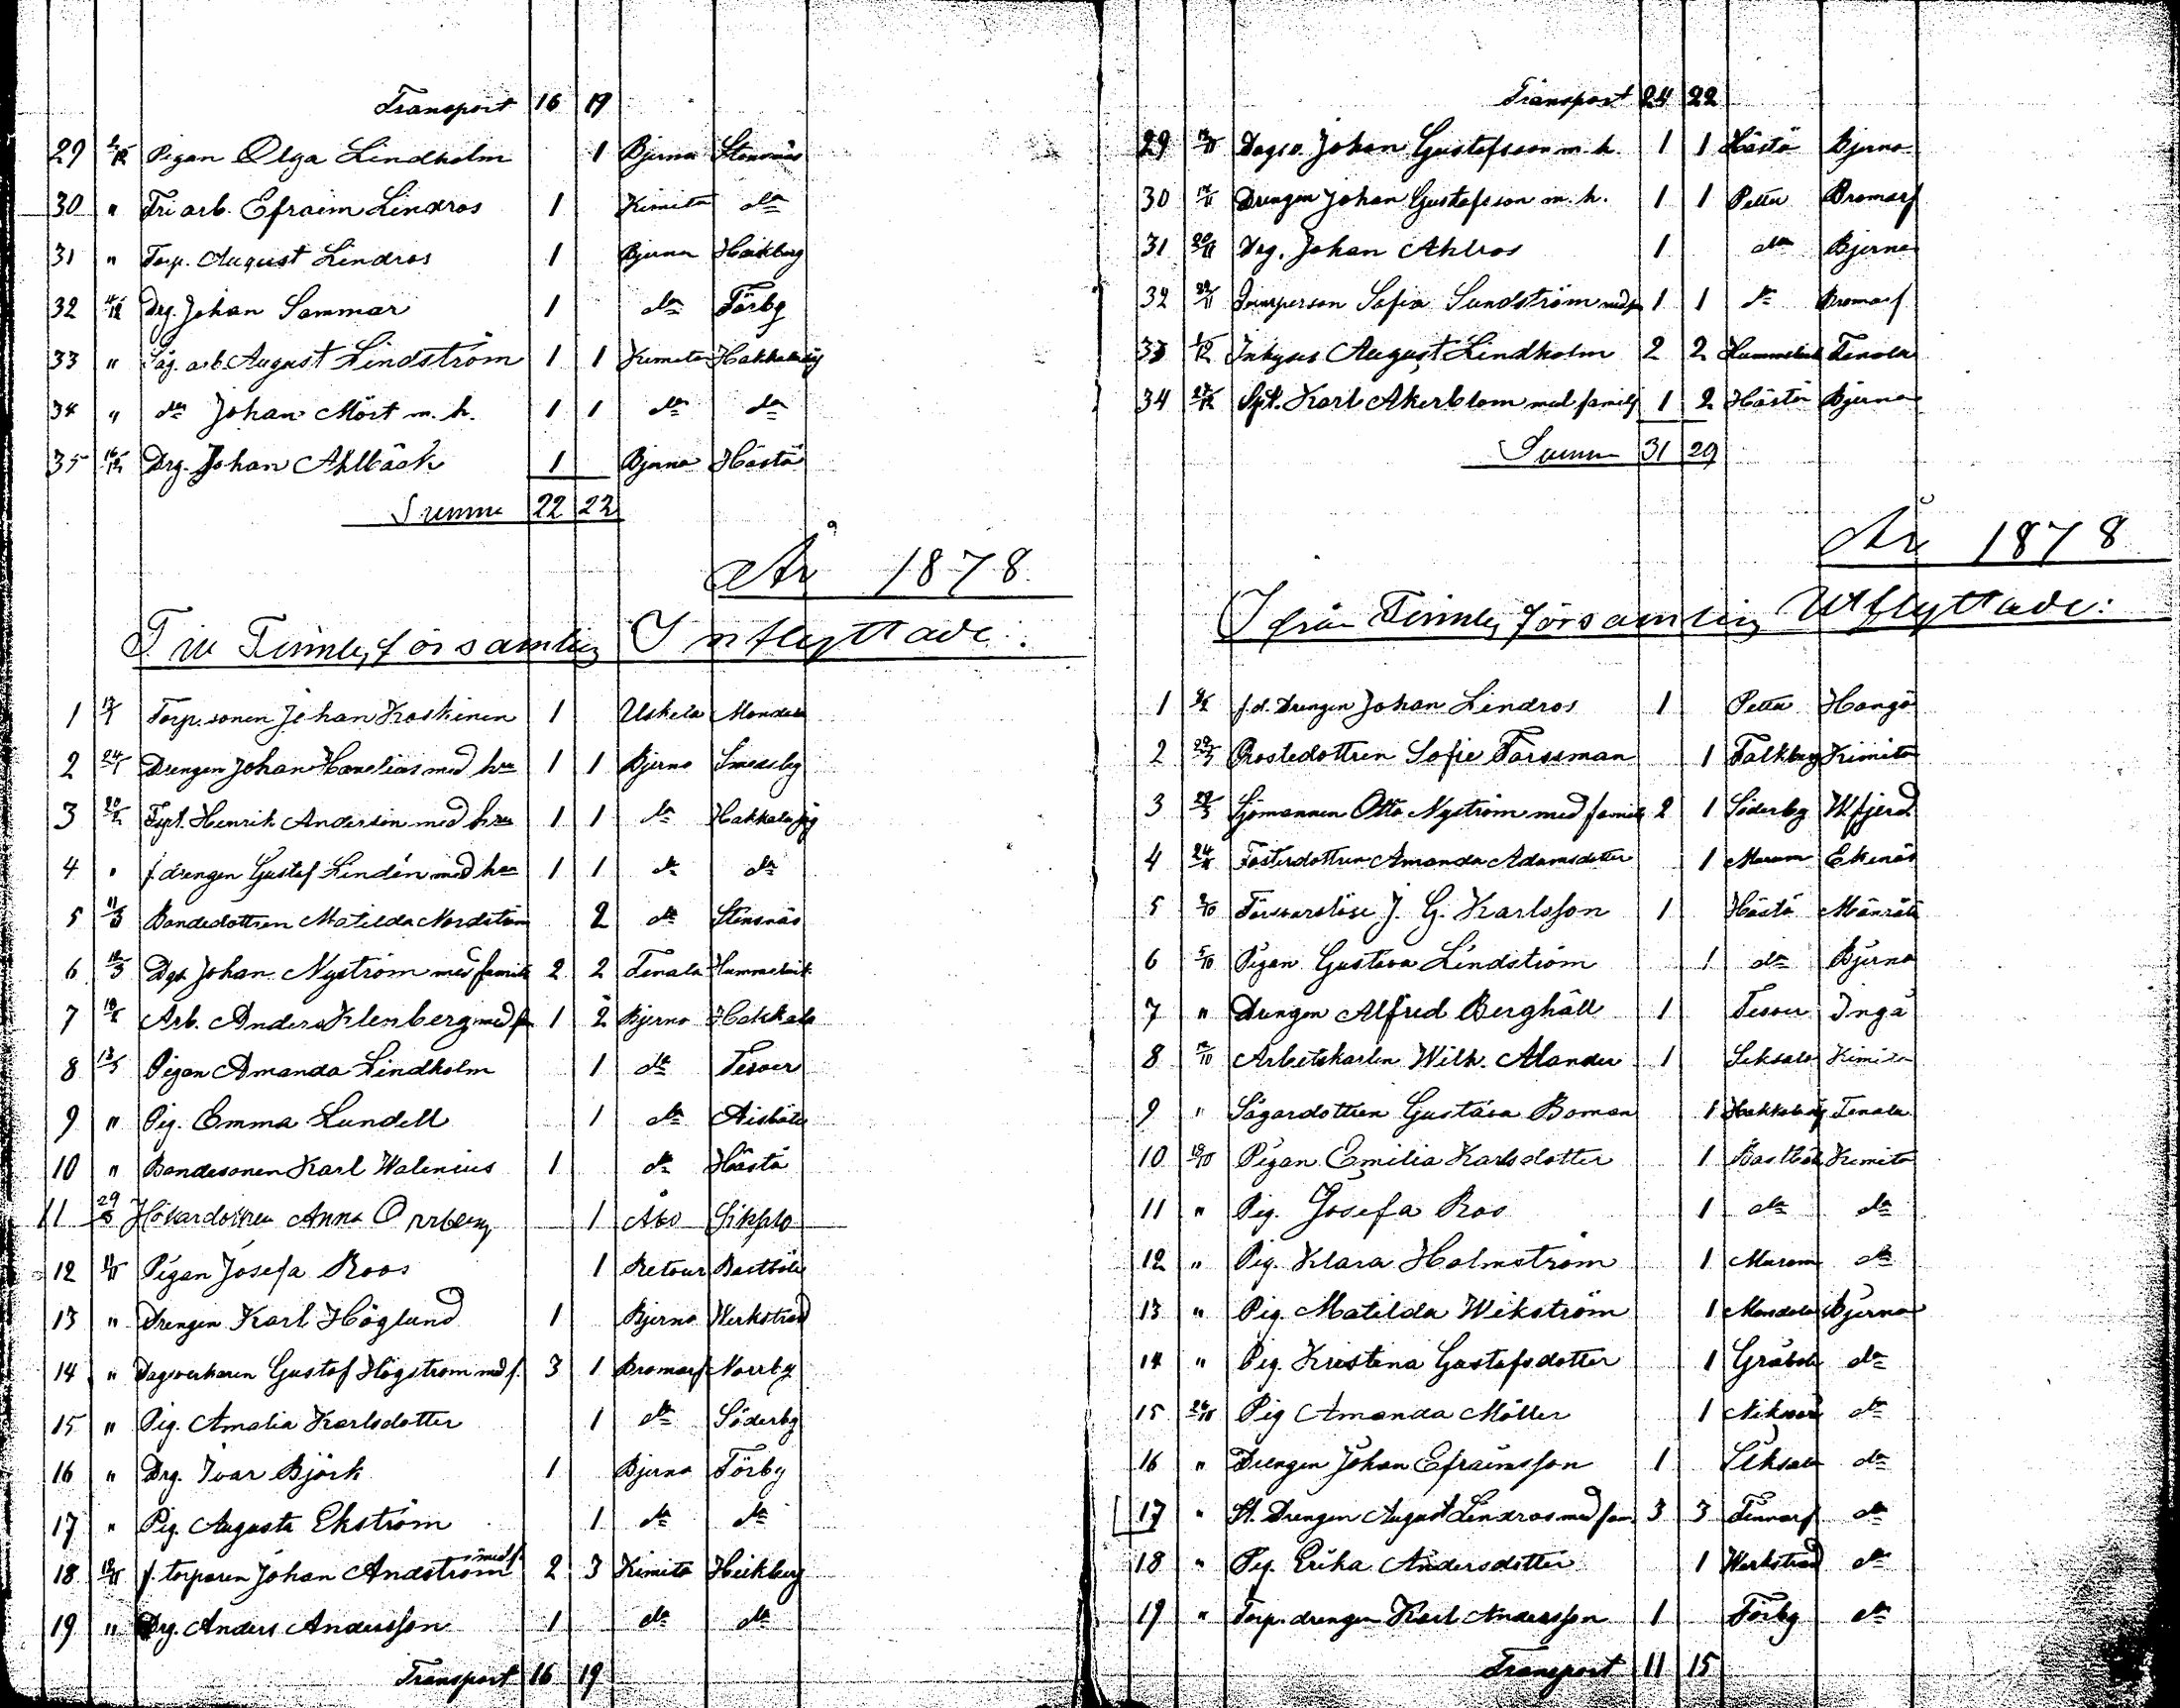 Transport 16 19
29 2/12 Pigan Olga Lindholm 1 Bjerno Stensnäs
30 " Fri arb. Efraim Lindros 1 Kimito do
31 " Torp. August Lindros 1 Bjerno
32 4/12 Drg. Johan Sammar 1 do Förby
33 " Såg. arb. August Lindström 1 1 Kimito
34 " do Johan Mört m. h. 1 1 do do
35 16/12 Drg. Johan Ahlbäck 1 Bjerno Hästö
Summa 22 22
År 1878
Till Finnby församling Inflyttade:
1 Torp. sonen Johan Koskinen 1 Uskela
2 24/1 Drengen Johan med hu 1 1 Bjerno Smedsby
3 20/2 Henrik Anderson med hu 1 1 do
4 " f drengen Gustaf Lindén med hu 1 1 do do
5 11/3 Bondedottren Matilda Nordström 2 do Stensnäs
6 12/3 Johan Nyström med familj 2 2 Tenala
7 Arb. Anders Klenberg med fm 1 2 Bjerno Hakkala
8 Pigan Amanda Lindholm 1 do Tesvor
9 " Pig. Emma Lundell 1 do
10 " Bondesonen Karl Walenius 1 do Hästö
11 Anna Orrberg 1 Åbo
12 Pigan Josefa Roos 1 Retour Bastböle
13 " Drengen Karl Höglund 1 Bjerno Werkstrand
14 " Dagsverkaren Gustaf Högström med f. 3 1 Bromarf Norrby
15 " Pig. Amalia Karlsdotter 1 do Söderby
16 " Drg. Ivar Björk 1 Bjerno Förby
17 " Pig. Augusta Ekström 1 do do
18 f. torparen Johan Andström med f. 2 3 Kimito
19 " Drg. Anders Andersson 1 do do
Transport 16 19
Transport 24 22
29 Dagsv. Johan Gustafsson m. h. 1 1 Hästö Bjerno
30 Drengen Johan Gustafsson m. h. 1 1 Petter Bromarf
31 20/11 Drg. Johan Ahlros 1 do Bjerno
32 Sofia Sundström 1 1 do Bromarf
33 1/12 Inhyses August Lindholm 2 2 Tenala
34 Karl Åkerblom med familj 1 2 Hästö Bjerno
Summa 31 29
År 1878
Ifrån Finnby församling Utflyttade:
1 f.d. Drengen Johan Lindros 1 Petter Hangö
2 Prostedottren Sofie Forssman 1 Falkberg Kimito
3 Sjömannen Otto Nyström med familj 2 1 Söderby W.fjerd
4 Fosterdottren Amanda Adamsdotter 1 Marum Ekenäs
5 Försvarslöse J. G. Karlsson 1 Hästö
6 5/10 Pigan Gustava Lindström 1 do Bjerno
7 " Drengen Alfred Berghäll 1 Tesvor Ingå
8 Arbetskarlen Wilh. Alander 1 Kimito
9 " Gustava Boman 1 Tenala
10 Pigan Emilia Karlsdotter 1 Bastböle Kimito
11 " Pig. Josefa Ros 1 do do
12 " Pig. Klara Holmström 1 Marum do
13 " Pig. Matilda Wikström 1 Bjerno
14 " Pig. Kristina Gustafsdotter 1 Gråböle do
15 Pig Amanda Möller 1 do
16 " Drengen Johan Efraimsson 1 do
17 " St. Drengen August Lindros med fam. 3 3 Finnarf do
18 " Pig. Erika Andersdotter 1 Werkstrand do
19 " Torp. drengen Karl Andersson 1 Förby do
Transport 11 15